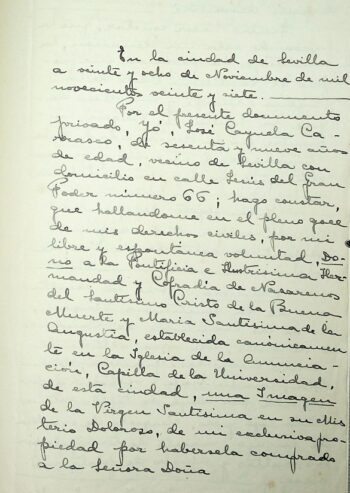 En la ciudad de Sevilla
a veinte y ocho de Noviembre de mil
novecientos veinte y siete.
Por el presente documento
privado, yó, José Cayuela Ca-
rrasco, de sesenta y nueve años
de edad, vecino de Sevilla con
domicilio en calle Jesús del Gran
Poder número 66; hago constar,
que hallandome en el pleno goce
de mis derechos civiles, por mi
libre y espontánea voluntad, Do-
no a la Pontificia e Ilustrisima Her-
mandad y Cofradia de Nazarenos
del Santisimo Cristo de la Buena
Muerte y Maria Santisima de la
Angustia, establecida canónicamen
te en la Iglesia de la Anuncia-
ción, Capilla de la Universidad,
de esta ciudad, una Imagen
de la Virgen Santisima en su Mis
terio Doloroso, de mi exclusiva pro-
piedad por habersela comprado
a la Señora Doña